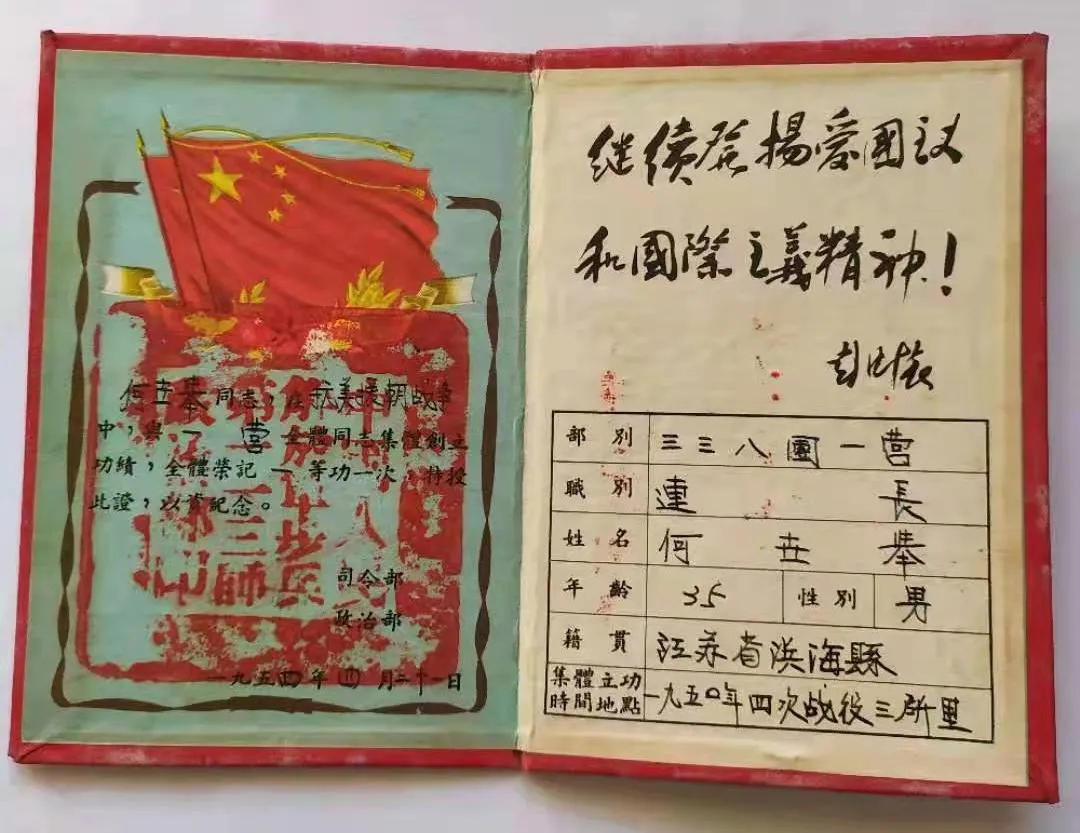 继續发揚爱國主义
和國際主義精神!
彭德怀
何世同志,在抗美援朝战争
中,與一营全體同志集體創立
功績,全體榮記一等功一次,特授
此證,以資記念。
司令部
政治部
一九五四年四月二十一日
部別 三三八團一营
職別 連長
姓名 何世
年齡 35 性別 男
籍貫 江苏省浜海縣
集體立功時間地點 一九五〇年四次战役三所里